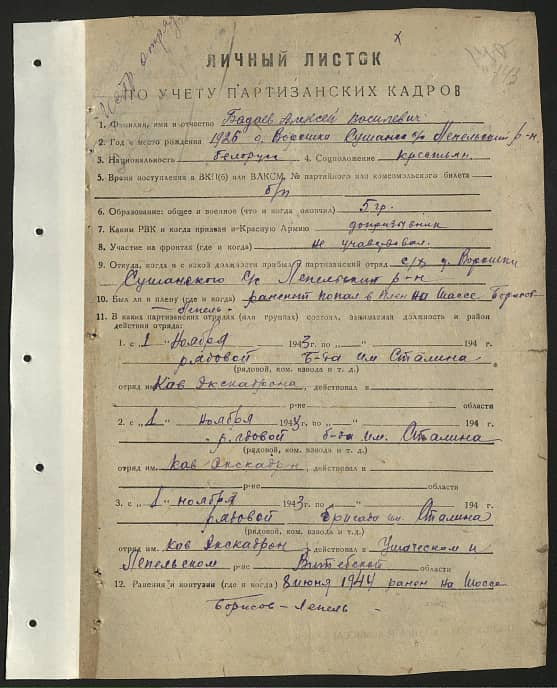 ЛИЧНЫЙ ЛИСТОК
ПО УЧЕТУ ПАРТИЗАНСКИХ КАДРОВ
1. Фамилия, имя и отчество Бадаев Алексей Васильевич
2. Год и место рождения 1926 д. Ворошки Сушанск с/с Лепельский р-н.
3. Национальность белорус 4. Соцположение крестьян.
5. Время поступления в ВКП(б) или ВЛКСМ, № партийного или комсомольского билета
б/п
6. Образование: общее и военное (что и когда окончил) 5 гр.
7. Каким РВК и когда призван в Красную Армию допризывник
8. Участие на фронтах (где и когда) не учавствовал.
9. Откуда, когда и с какой должности прибыл в партизанский отряд с/х д. Ворошки
Сушанского с/с Лепельский р-н
10. Был ли в плену (где и когда) раненый попал в плен на шоссе Борисов-
Лепель-
11. В каких партизанских отрядах (или группах) состоял, занимаемая должность и район
действия отряда:
1. с „1 ноября 1943г. по „ “ 194 г.
рядовой б-да им Сталина
(рядовой, ком. взвода и т. д.)
отряд им. Кав Эскадрона, действовал в
р-не области
2. с „1“ ноября 1943 г. по „ “ 194 г.
рядовой б-да им. Сталина
(рядовой, ком. взвода и т. д.)
отряд им. Кав Эскадрон, действовал в
р-не области
3. с „1 ноября 1943г. по „ “ 194 г.
рядовой бригада им. Сталина
(рядовой, ком. взвода и т. д.)
отряд им. Кав Эскадрон действовал в Ушачском и
Лепельском р-не Витебской области
12. Ранения и контузии (где и когда) 8 июня 1944 ранен на шоссе
Борисов – Лепель –